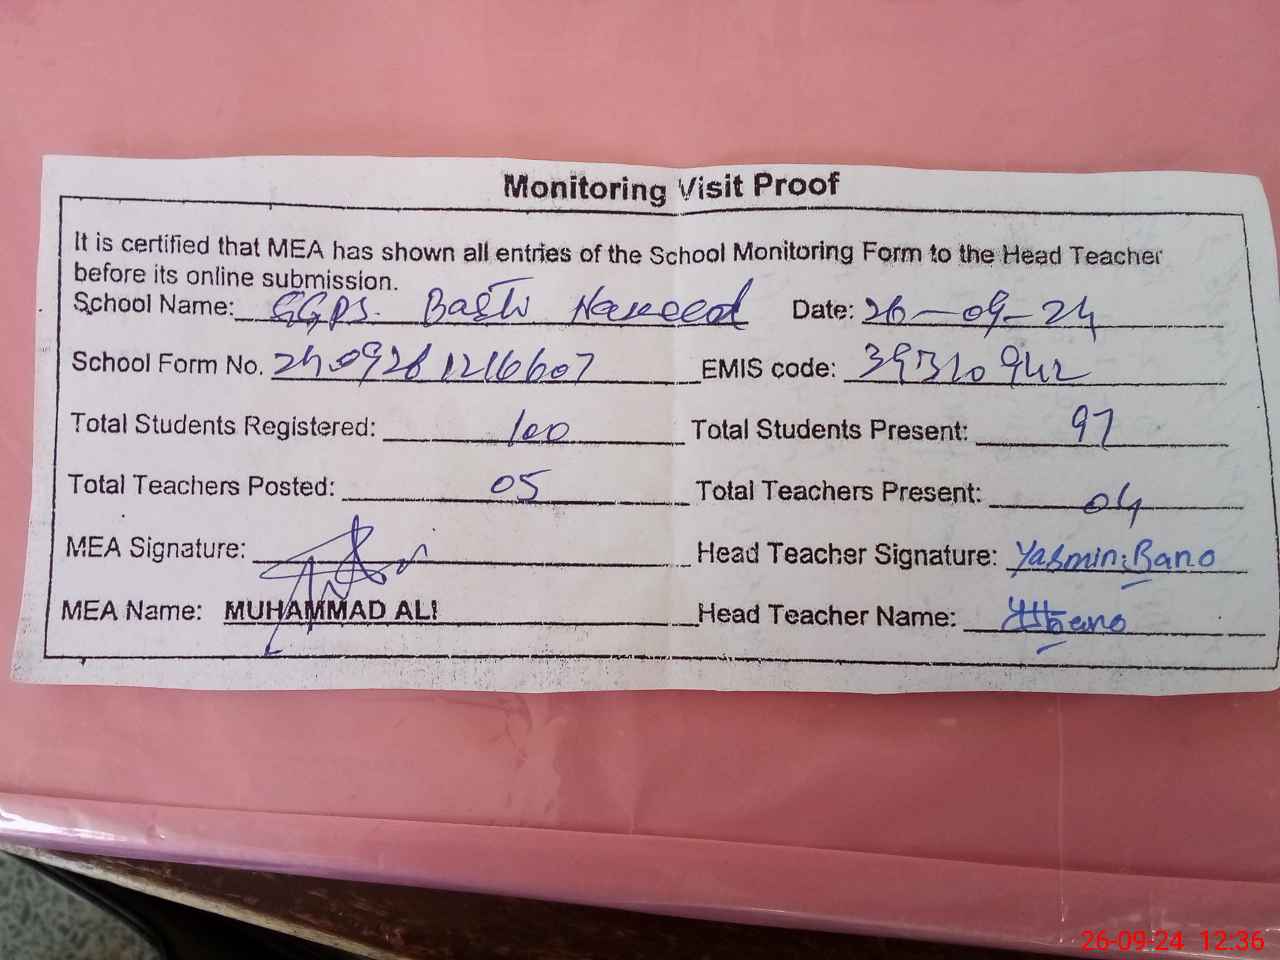 Monitoring Visit Proof
It is certified that MEA has shown all entries of the School Monitoring Form to the Head Teacher
before its online submission.
School Name: GGPS. Basti Naveed Date: 26-09-24
School Form No. 240926 1216607 EMIS code: 39310942
Total Students Registered: 100 Total Students Present: 97
Total Teachers Posted: 05 Total Teachers Present: 04
MEA Signature: Head Teacher Signature: Yasmin Bano
MEA Name: MUHAMMAD ALI Head Teacher Name:
26-09-24 12:36